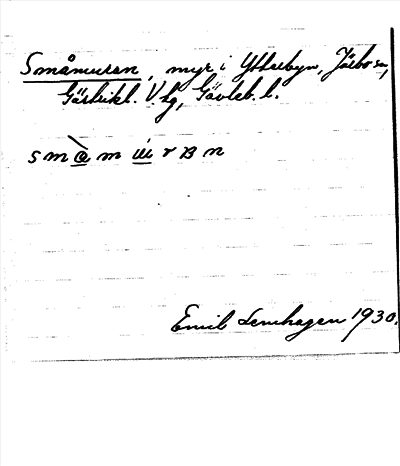 Småmuran, myr i Ytterbyn, Järbo sn,
Gästrikl. V. hg, Gävleb. l.
Emil Lenhagen 1930.